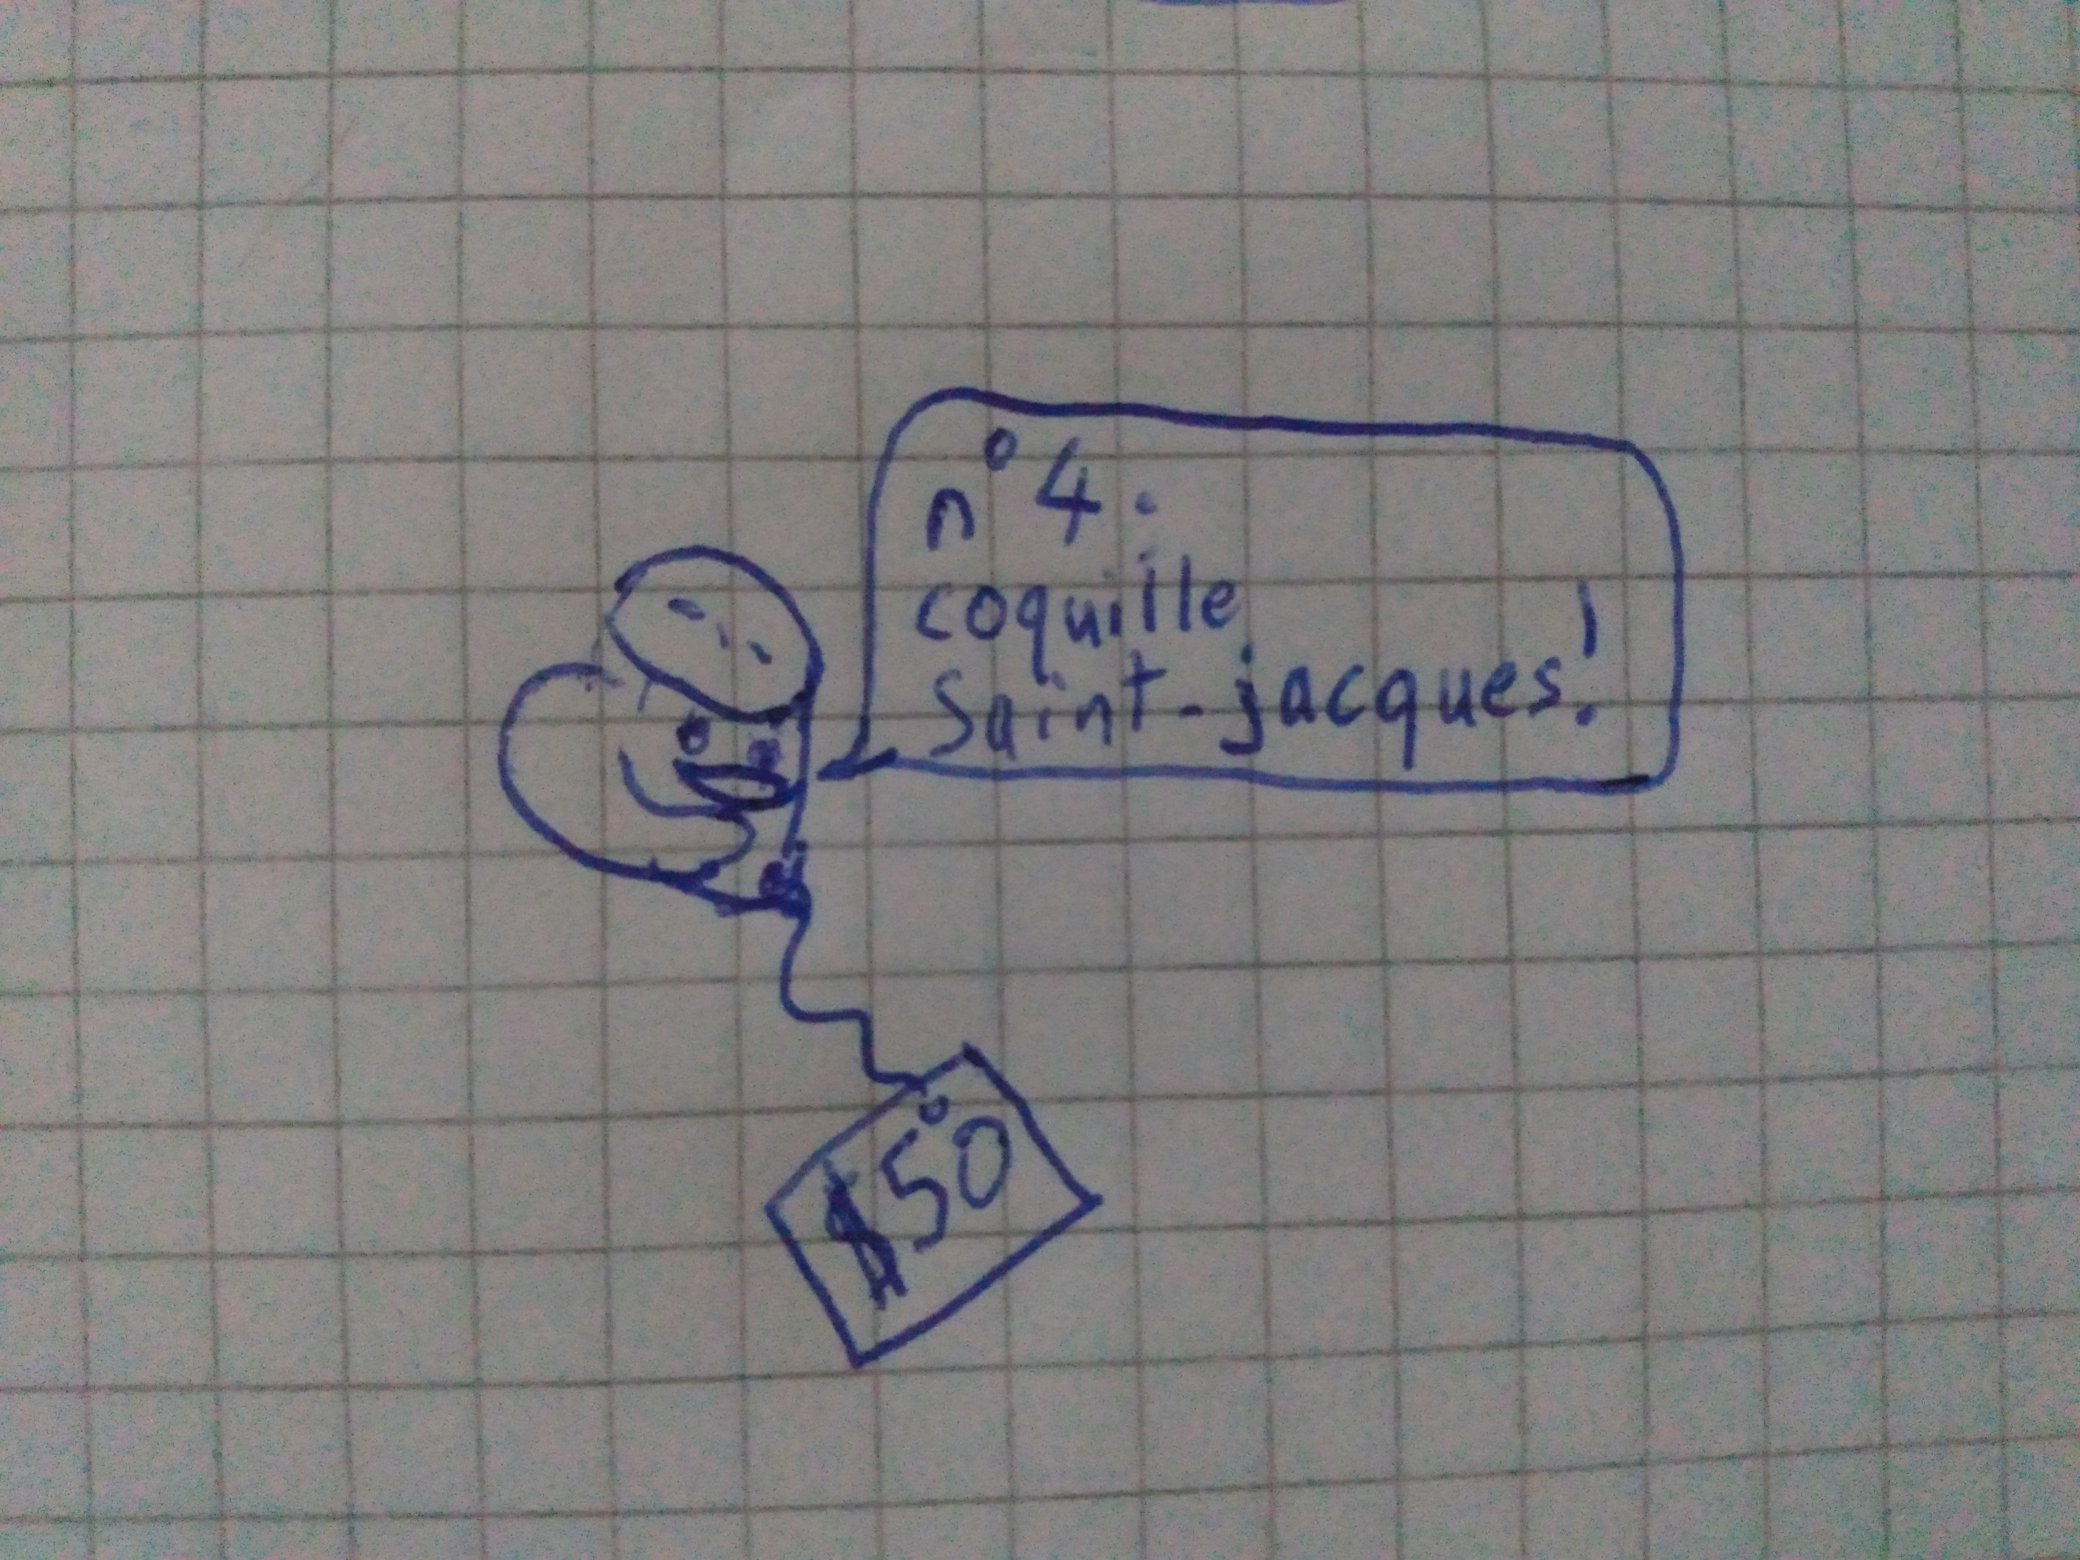 n°4:
coquille
Saint-jacques!
$50